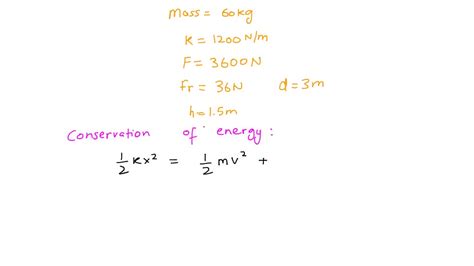 Mass = 60kg
K = 1200 N/m
F = 3600 N
fr = 36N d = 3m
h = 1.5m
Conservation of energy :
1/2 Kx² = 1/2 mv² +